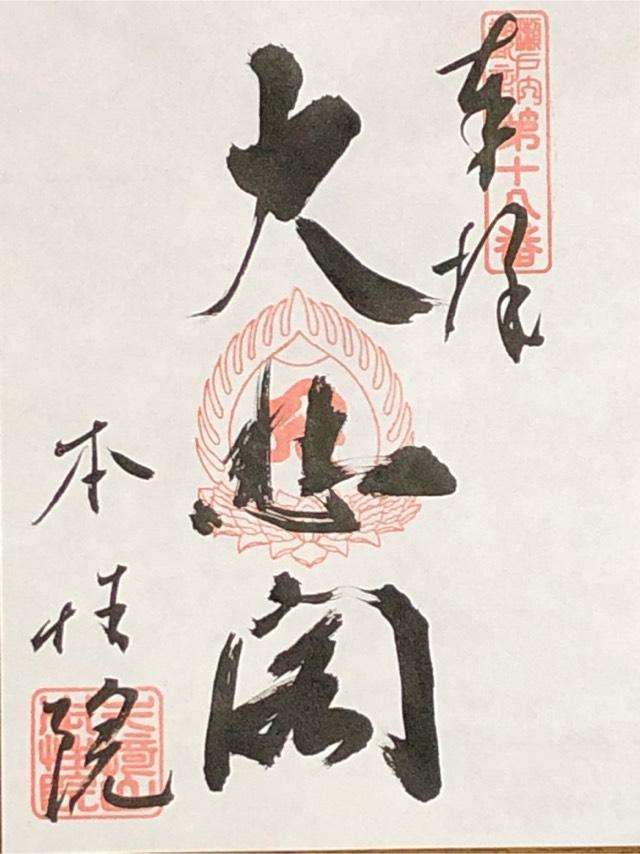 瀬戸内
第十八番
奉拝
大悲閣
本性院